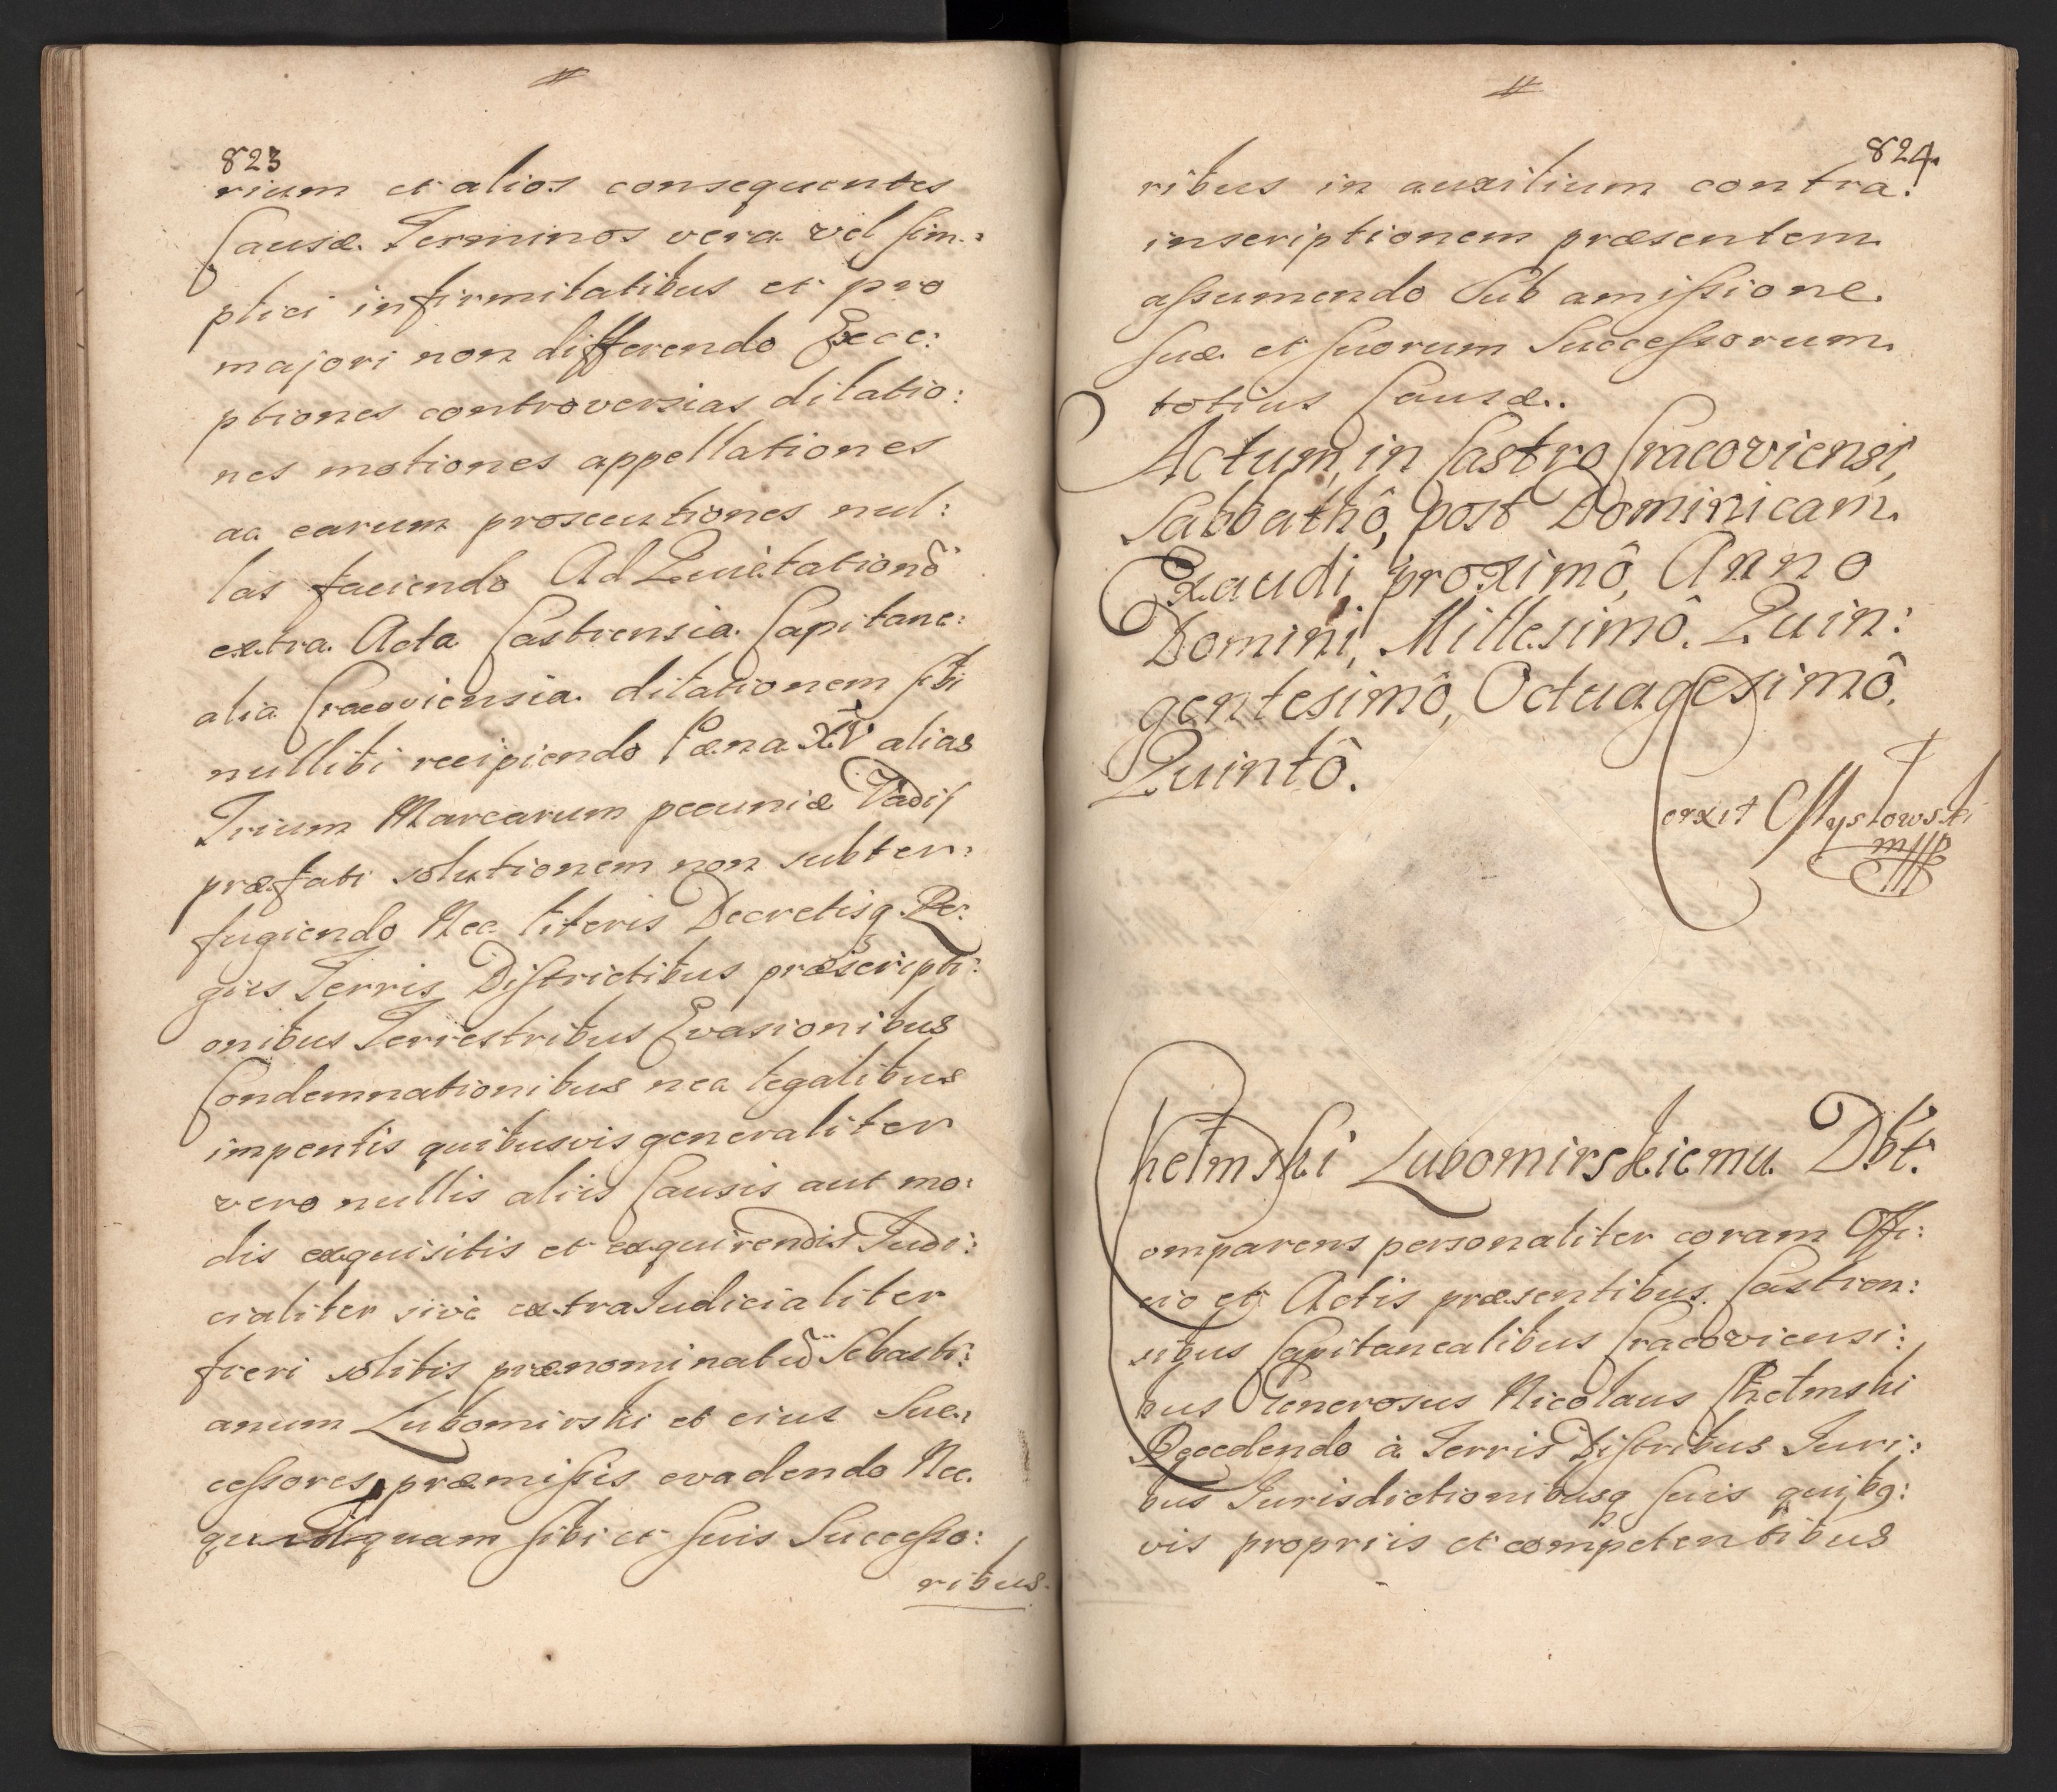 823
rium et alios consequentes
Causæ Terminos vera vel sim:
plici infirmitatibus et pro
majori non differendo Exce:
ptiones controversias dilatio:
nes motiones appellationes
ac earum prosecutiones nul:
las faciendo Ad Quietationē
extra Acta Castrensia Capitane:
alia Cracoviensia dilationem sibi
nullibi recipiendo Pæna XV alias
Trium Marcarum pecuniæ Vadij
præfati solutionem non subter:
fugiendo Nec literis Decretisq Re:
gÿs Terris Districtibus præscripti:
onibus Terrestribus Evasionibus
Condemnationibus nec legalibus
impentis quibusvis generaliter
vero nullis aliis Causis aut mo:
dis exquisitis et exquirendis Judi:
cialiter sive extraJudicialiter
fieri solitis prænominatū Sebasti:
anum Lubomirski et eius Suc:
cessores præmissis evadendo Nec
quidquam sibi et suis Successo:
ribus
824
ribus in auxilium contra
inscriptionem præsentem
assumendo Sub amissione
suæ et suorum Successorum
totius Causæ.
Actum in Castro Cracoviensi,
Sabbathô, post Dominicam
Exaudi proximô, Anno
Domini, Millesimô. Quin:
gentesimô, Octuagesimô.
Quintô.
Corxit Mysłowski
mpp
Chełmski Lubomirskiemu Dbt.
Comparens personaliter coram Offi:
cio et Actis præsentibus Castren:
sibus Capitanealibus Cracoviensi:
bus Generosus Nicolaus Chełmski
Recedendo à Terris Distribus Juri:
bus Jurisdictionibusq suis quibq:
vis propriis et competentibus